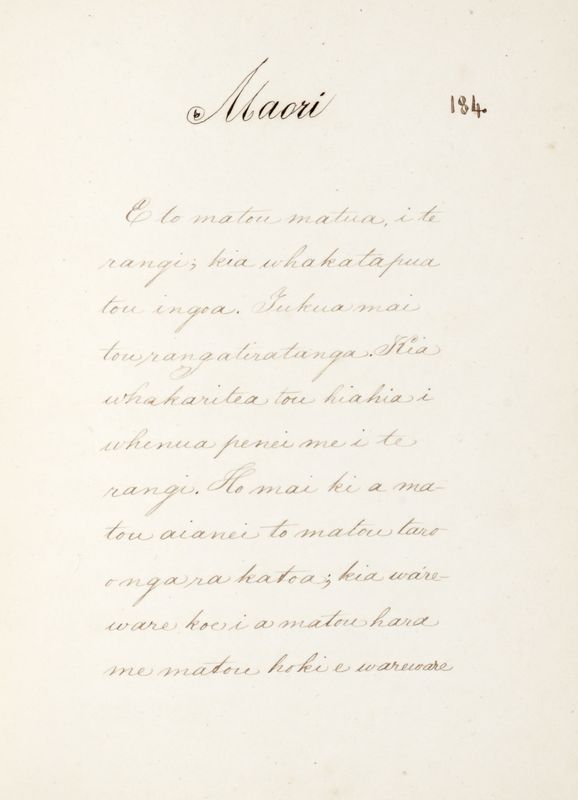 6 Maori
184.
E to matou matua, i te
rangi; kia whakatapua
tou ingoa. Tukua mai
tou rangatiratanga. Kia
whakaritea tou hiahia i
whenua penei me i te
rangi. Ho mai ki a ma-
tou aianei to matou taro
o nga ra katoa; kia ware-
ware koe i a matou hara
me matou hoki e wareware